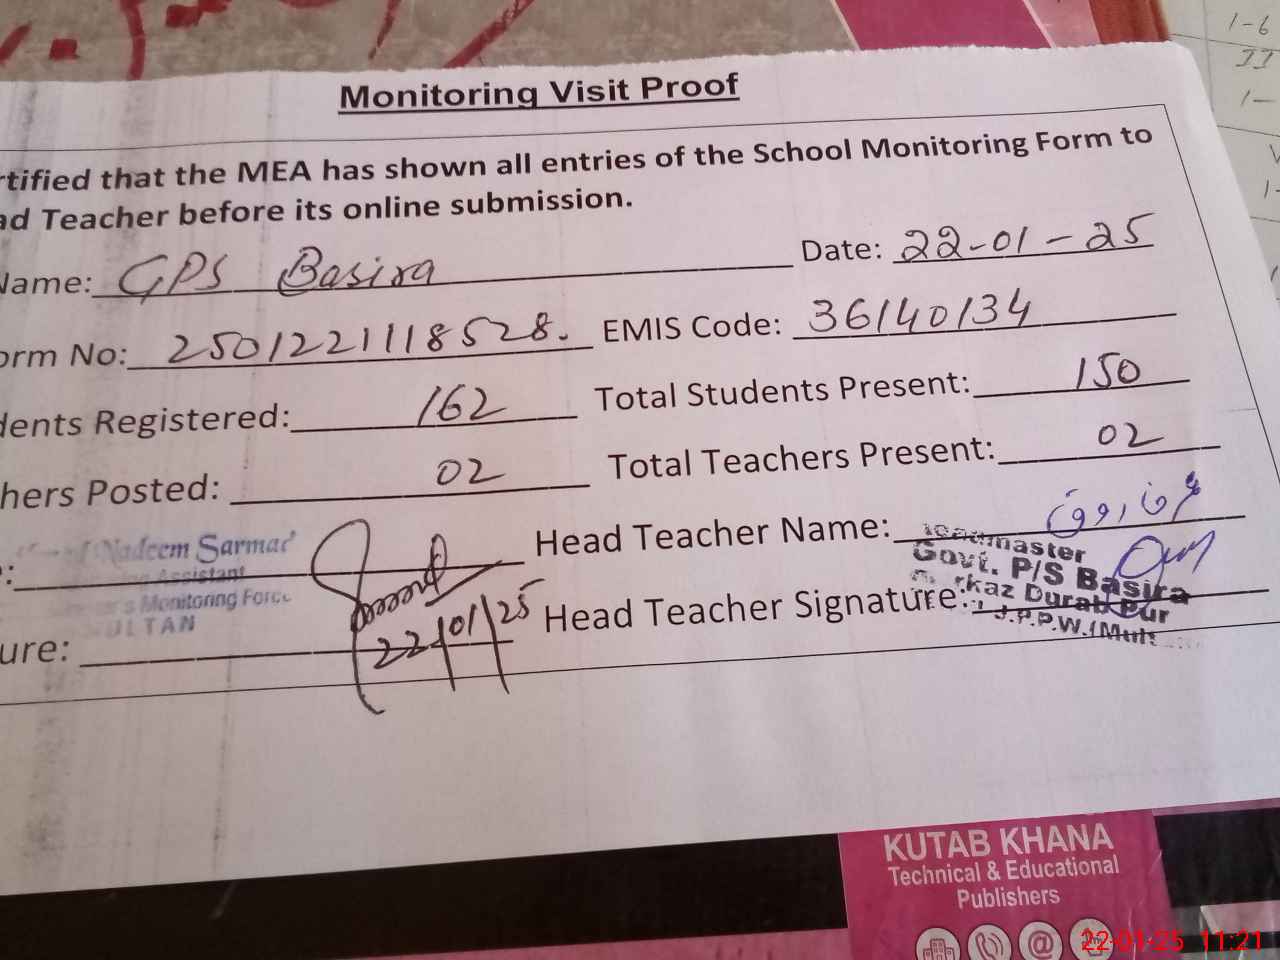 Monitoring Visit Proof
rtified that the MEA has shown all entries of the School Monitoring Form to
ad Teacher before its online submission.
Name: GPS Basira Date: 22-01-25
orm No: 2501221118528. EMIS Code: 36140134
dents Registered: 162 Total Students Present: 150
hers Posted: 02 Total Teachers Present: 02
Nadeem Sarmad Head Teacher Name:
Assistant
Monitoring Force
ULTAN
Headmaster
Govt. P/S Basira
rkaz Durab Pur
ure: 22/01/25 Head Teacher Signature:
KUTAB KHANA
Technical & Educational
Publishers
22-01-25 11:21